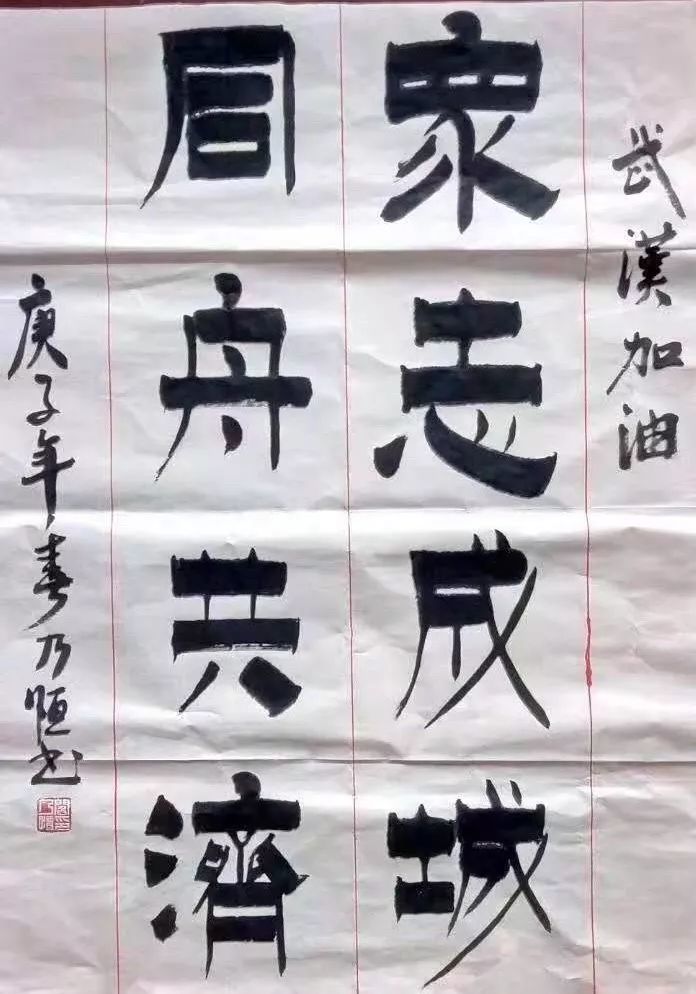 武漢加油
衆志成城
同舟共濟
庚子年春乃恒书